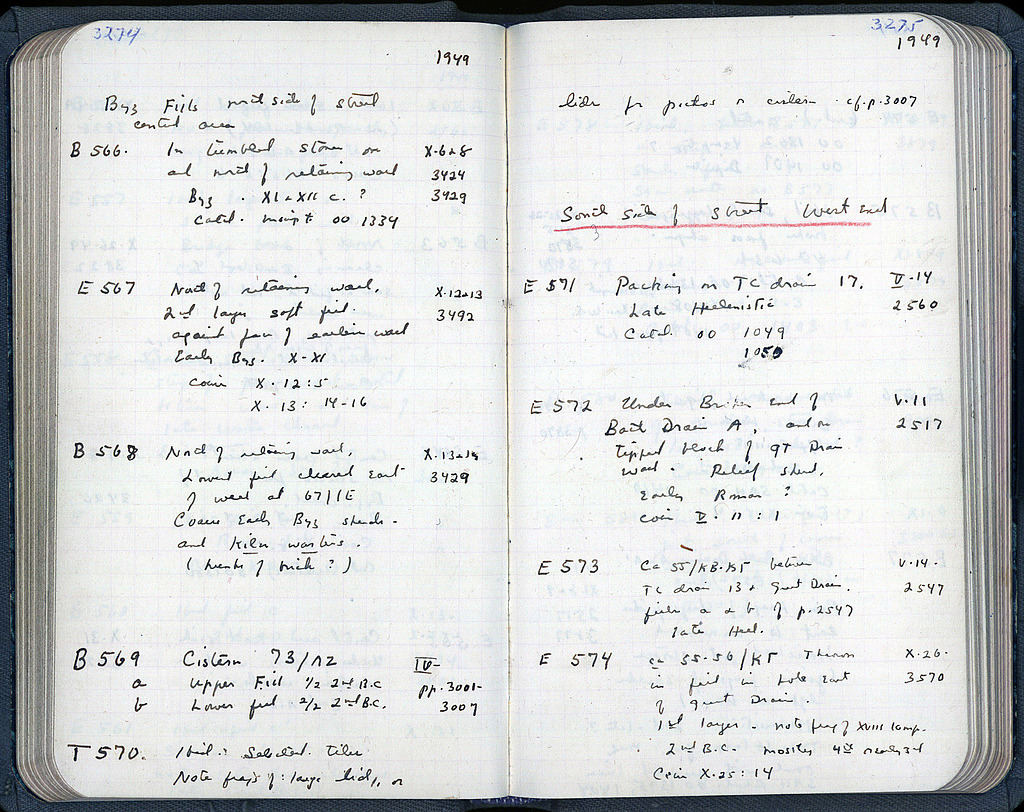 3274
1949
Byz Fills north side of street
central area
B 566. In tumbled stones on X-6-8
and north of retaining wall 3424
Byz. XI-XII c. ? 3429
Catal. 00 1334
E 567 North of retaining wall, X-12-13
2nd layer soft fill. 3492
against face of earlier wall
Early Byz. X-XI
coin X-12:5
X-13: 14-16
B 568 North of retaining wall, X-13-14
Lowest fill cleared East 3429
of wall at 67/ΙΕ
Coarse Early Byz sherds -
and Kiln wasters.
( of brick ? )
B 569 Cistern 73/ΛΖ IV-
a Upper Fill 1/2 2nd B.C pp. 3001-
b Lower fill 2/2 2nd B.C. 3007
T 570. Ibid: Selected tiles
Note frags of: large lids, or
3275
1949
lids for pithos or cistern. cf. p. 3007
South side of Street West End
E 571 Packing on TC drain 17. V-14
Late Hellenistic 2560
Catal. 00 1049
1050
E 572 Under Broken End of V-11
Drain A, and in 2517
Tipped block of GT Drain
wall. Relief sherd,
Early Roman ?
coin V-11:1
E 573 Ca 55/ΚΒ-ΚΓ between V-14-
TC drain 13 & Great Drain, 2547
fills a & b of p. 2547
late Hell.
E 574 ca 55-56/ΚΓ X-26-
in fill in hole East 3570
of Great Drain.
1st layer - note frag of XVIII lamp.
2nd B.C. mostly 4th nearly 3rd
Coin X-25:14